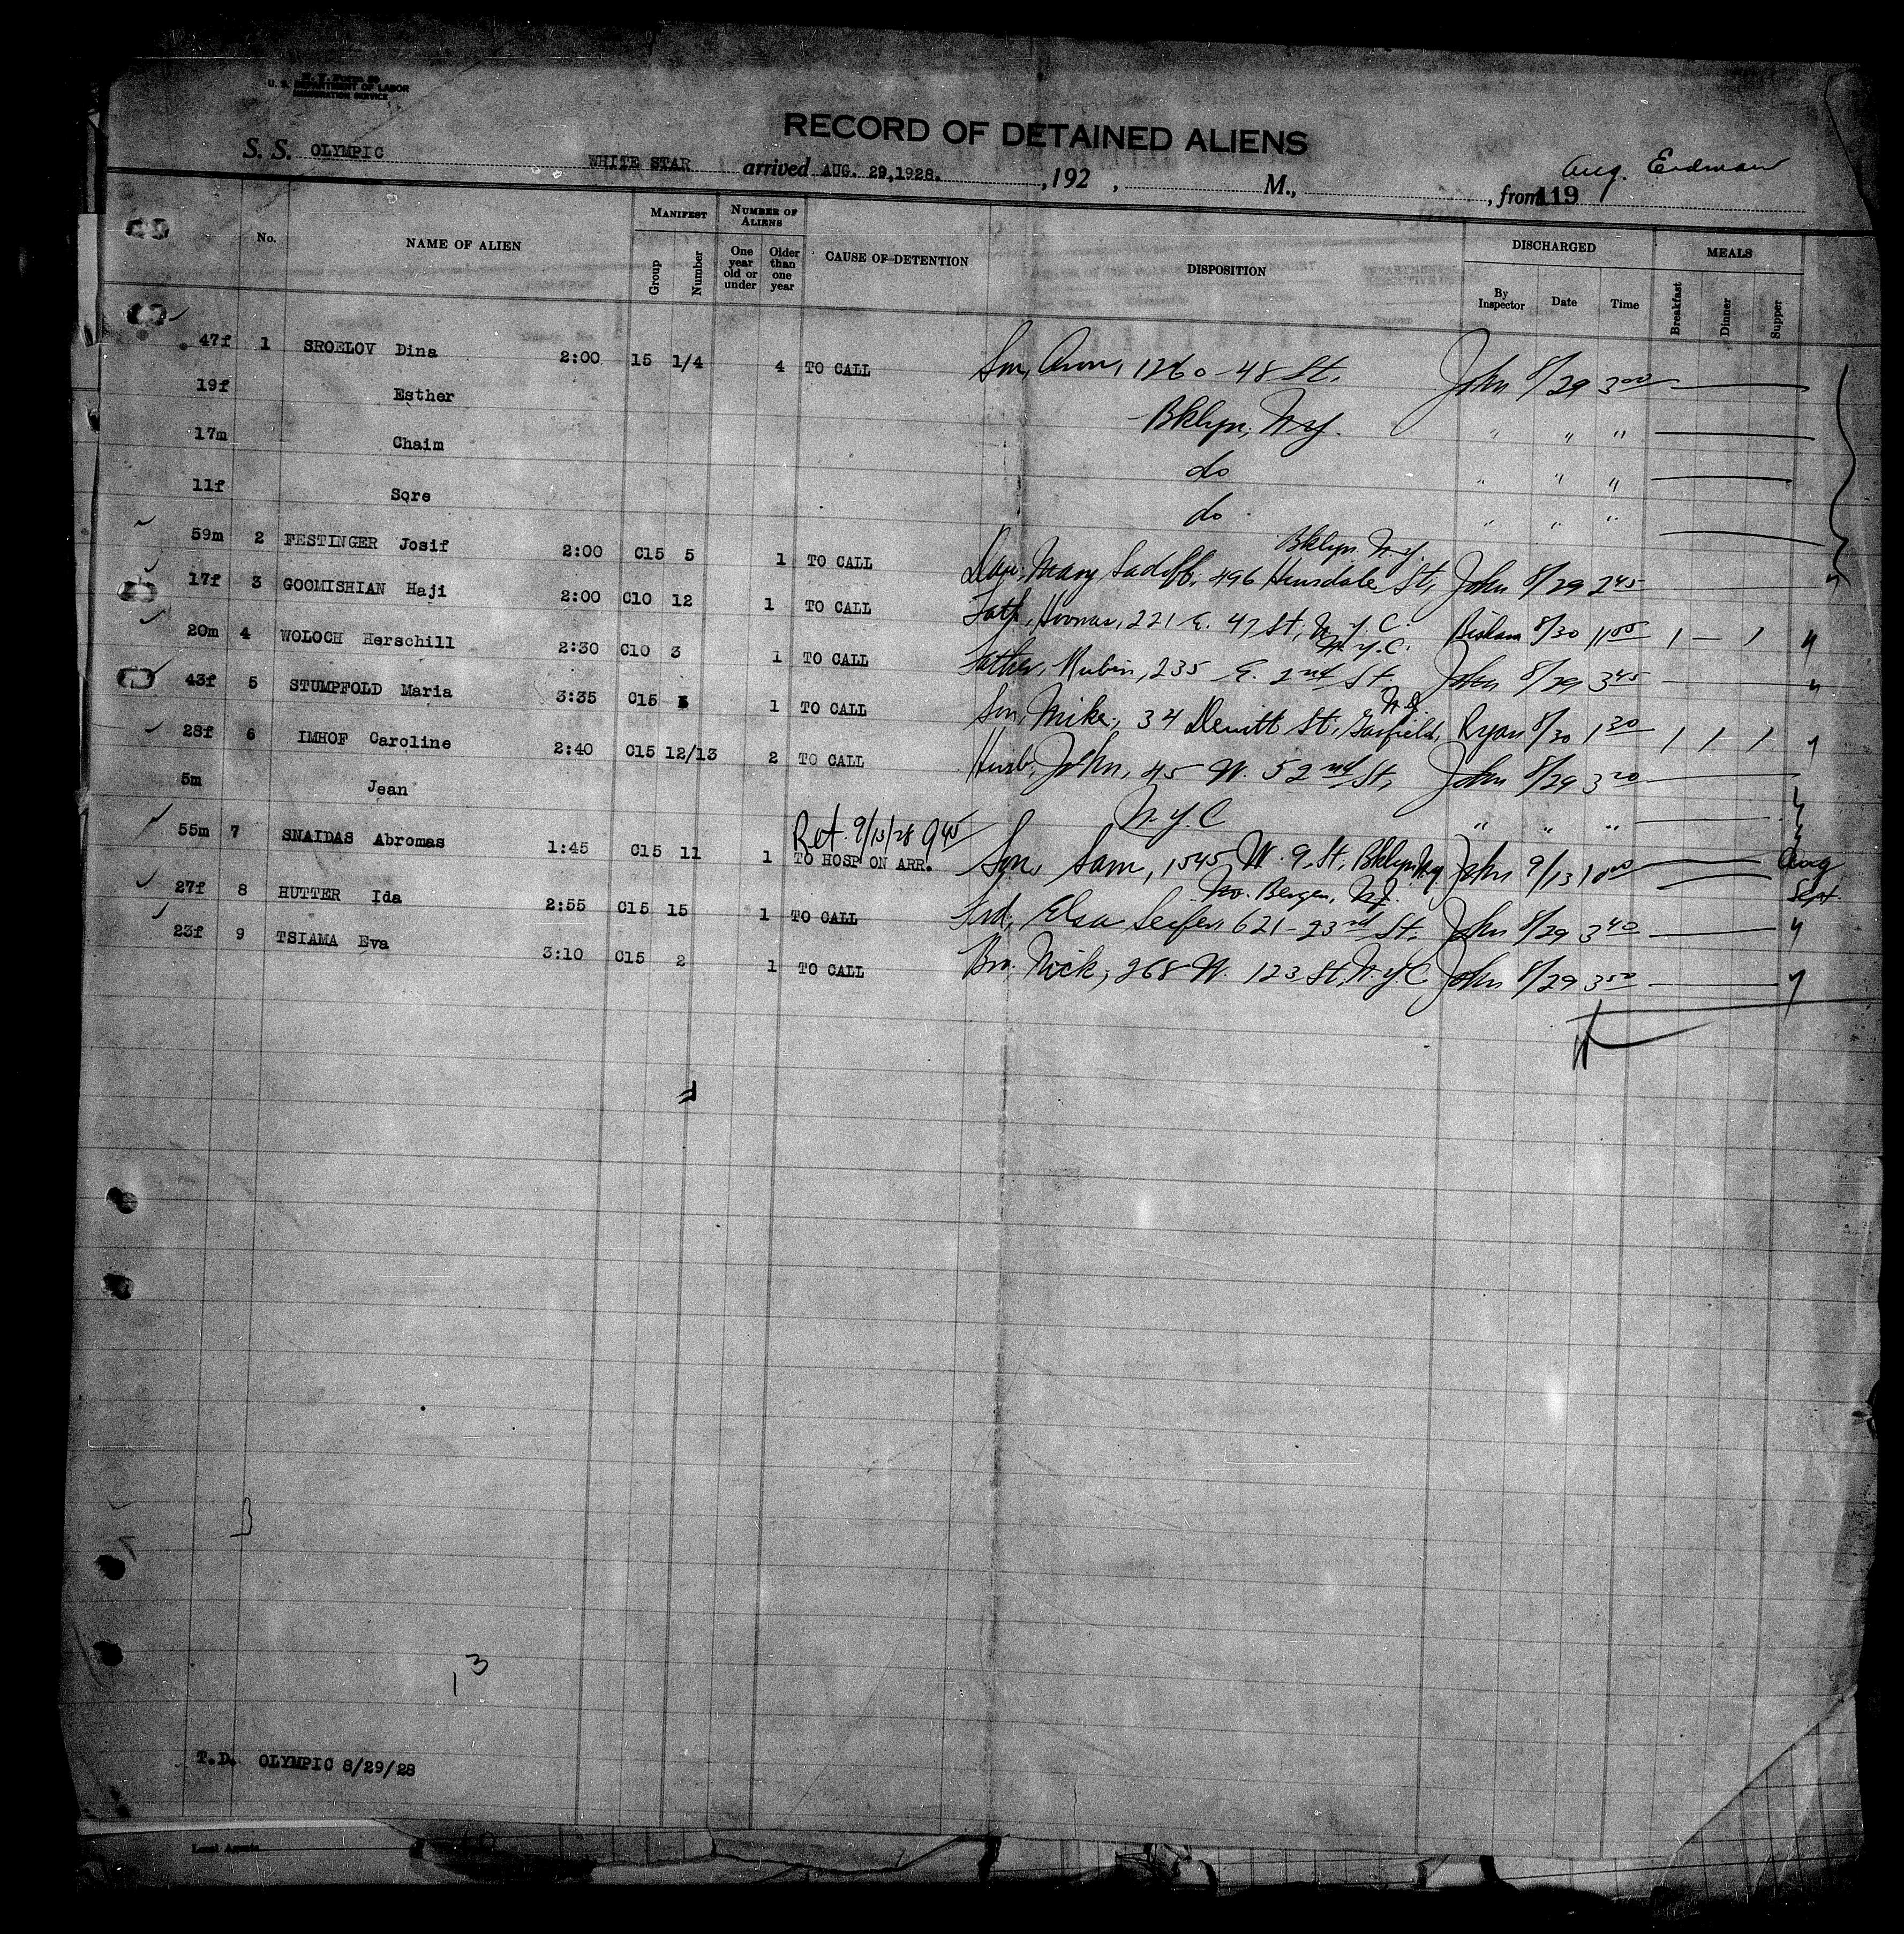 U. S. DEPARTMENT OF LABOR
IMMIGRATION SERVICE
RECORD OF DETAINED ALIENS
S. S. OLYMPIC WHITE STAR arrived AUG. 29, 1928. , 192 , M., , from 119 Aug. Erdman
No. NAME OF ALIEN MANIFEST Group Number NUMBER OF ALIENS One year old or under Older than one year CAUSE OF DETENTION DISPOSITION DISCHARGED By Inspector Date Time MEALS Breakfast Dinner Supper
47f 1 SROELOV Dina 2:00 15 1/4 4 TO CALL Son, 1260 - 48 St. John 8/29 3 00
19f Esther Bklyn, N.Y. " " "
17m Chaim do " " "
11f Sore do " " "
59m 2 FESTINGER Josif 2:00 C15 5 1 TO CALL Dau, Mary Sadoff, 496 Hinsdale St, Bklyn N.Y. John 8/29 2 45
17f 3 GOOMISHIAN Haji 2:00 C10 12 1 TO CALL Fath, 221 E. 47 St, N.Y.C. 8/30 11 00 1 — 1
20m 4 WOLOCH Herschill 2:30 C10 3 1 TO CALL Father, Rubin, 235 E. 2nd St. N.Y.C. John 8/29 3 45
43f 5 STUMPFOLD Maria 3:35 C15 1 TO CALL Son, Mike, 34 Dewitt St, Garfield, N.J. Ryan 8/30 1 30 1 1 1
28f 6 IMHOF Caroline 2:40 C15 12/13 2 TO CALL Husb, John, 45 W. 52nd St, John 8/29 3 20
5m Jean N.Y.C " " "
55m 7 SNAIDAS Abromas 1:45 C15 11 1 Ret. 9/13/28 9 45 TO HOSP ON ARR. Son, Sam, 1545 W. 9 St, Bklyn N.Y. John 9/13 10 00 Aug Sept.
27f 8 HUTTER Ida 2:55 C15 15 1 TO CALL Frd, Elsa 621 - 23rd St. No. Bergen, N.J. John 8/29 3 40
23f 9 TSIAMA Eva 3:10 C15 2 1 TO CALL Bro, Nick, 268 W. 123 St, N.Y.C John 8/29 3 50
13
T.D. OLYMPIC 8/29/28
Local Agents